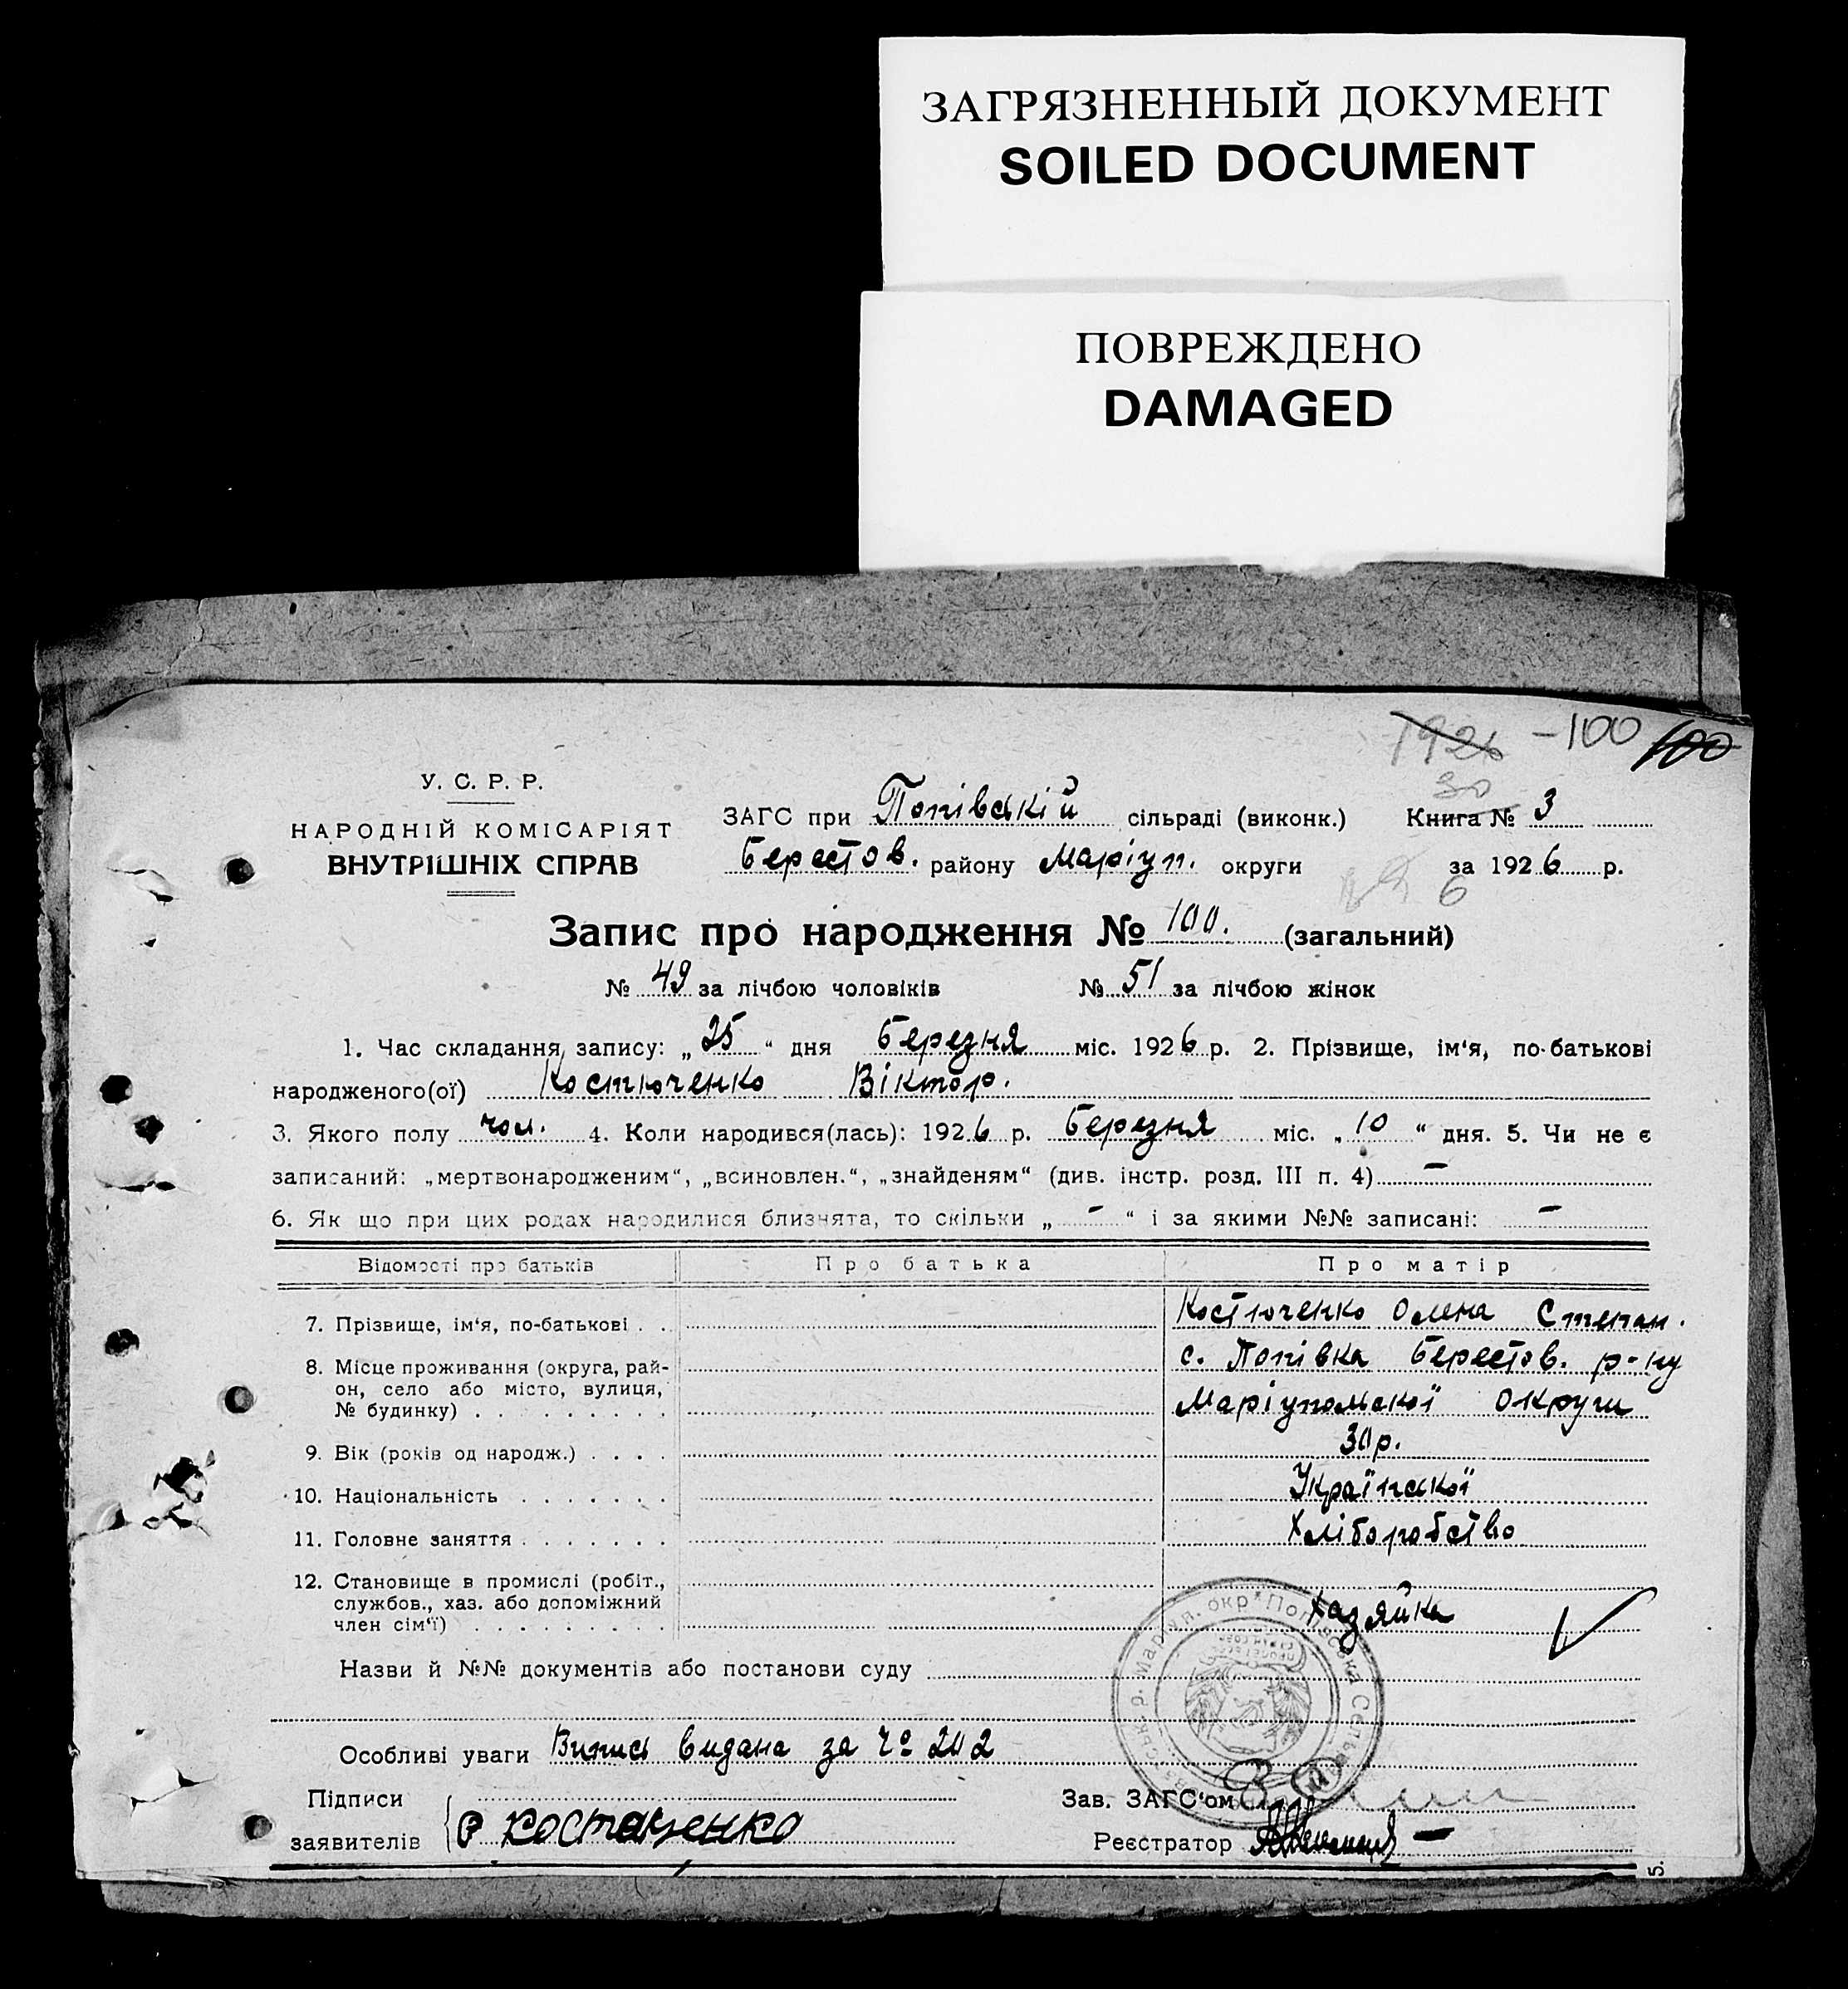 ЗАГРЯЗНЕННЫЙ ДОКУМЕНТ
SOILED DOCUMENT
ПОВРЕЖДЕНО
DAMAGED
1926 -100 100
30
У. С. Р. Р.
НАРОДНІЙ КОМІСАРІЯТ
ВНУТРІШНІХ СПРАВ
ЗАГС при Попівській сільраді (виконк.) Книга № 3
Берестов. району Маріуп. округи за 1926 р.
6
Запис про народження № 100. (загальний)
№ 49 за лічбою чоловіків № 51 за лічбою жінок
1. Час складання запису: „25“ дня Березня міс. 1926 р. 2. Прізвище, ім‘я, по-батькові
народженого(ої) Костюченко Віктор.
3. Якого полу чол. 4. Коли народився(лась): 1926 р. Березня міс. „10“ дня. 5. Чи не є
записаний: „мертвонародженим“, „всиновлен.“, „знайденям“ (див. інстр. розд. III п. 4) —
6. Як що при цих родах народилися близнята, то скільки „ — “ і за якими №№ записані: —
Відомості про батьків Про батька Про матір
7. Прізвище, ім‘я, по-батькові . . Костюченко Олена Степан.
8. Місце проживання (округа, рай- с. Попівка Берестов. р-ну
он, село або місто, вулиця,
№ будинку) . . . . . . . . . Маріупольскої округи
9. Вік (років од народж.) . . . . 30 р.
10. Національність . . . . . . . Української
11. Головне заняття . . . . . . . Хліборобство
12. Становище в промислі (робіт.,
службов., хаз. або допоміжний Хазяйка
член сім‘ї) . . . . . . . . .
Назви й №№ документів або постанови суду
Особливі уваги Випись видана за № 202
Підписи
заявителів Костюченко
Зав. ЗАГС‘ом
Реєстратор
5.